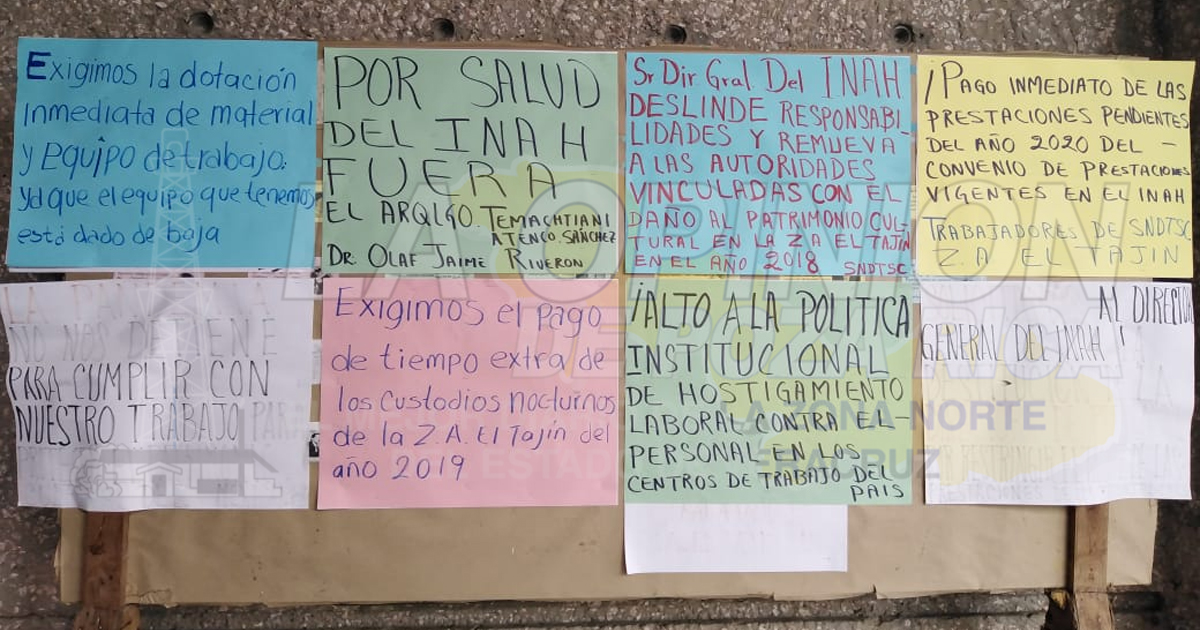 Exigimos la dotación
inmediata de material
y equipo de trabajo.
ya que el equipo que tenemos
está dado de baja
POR SALUD
DEL INAH
FUERA
EL ARQLGO. TEMACHTIANI
ATENCO SÁNCHEZ
DR. OLAF JAIME RIVERON
Sr Dir Gral. Del INAH
DESLINDE RESPONSABI-
LIDADES Y REMUEVA
A LAS AUTORIDADES
VINCULADAS CON EL
DAÑO AL PATRIMONIO CUL-
TURAL EN LA ZA EL TAJÍN
EN EL AÑO 2018 SNDTSC
¡PAGO INMEDIATO DE LAS
PRESTACIONES PENDIENTES
DEL AÑO 2020 DEL -
CONVENIO DE PRESTACIONES
VIGENTES EN EL INAH
TRABAJADORES DE SNDTSC
ZA EL TAJIN
NO NOS DETIENE
PARA CUMPLIR CON
NUESTRO TRABAJO
Exigimos el pago
de tiempo extra de
los custodios nocturnos
de la Z.A. El Tajín del
año 2019
¡ALTO A LA POLITICA
INSTITUCIONAL
DE HOSTIGAMIENTO
LABORAL CONTRA EL-
PERSONAL EN LOS
CENTROS DE TRABAJO DEL
PAIS
AL DIRECTOR
GENERAL DEL INAH!
LA OPINIÓN
DE POZA RICA
LA ZONA NORTE
ESTADO VERACRUZ